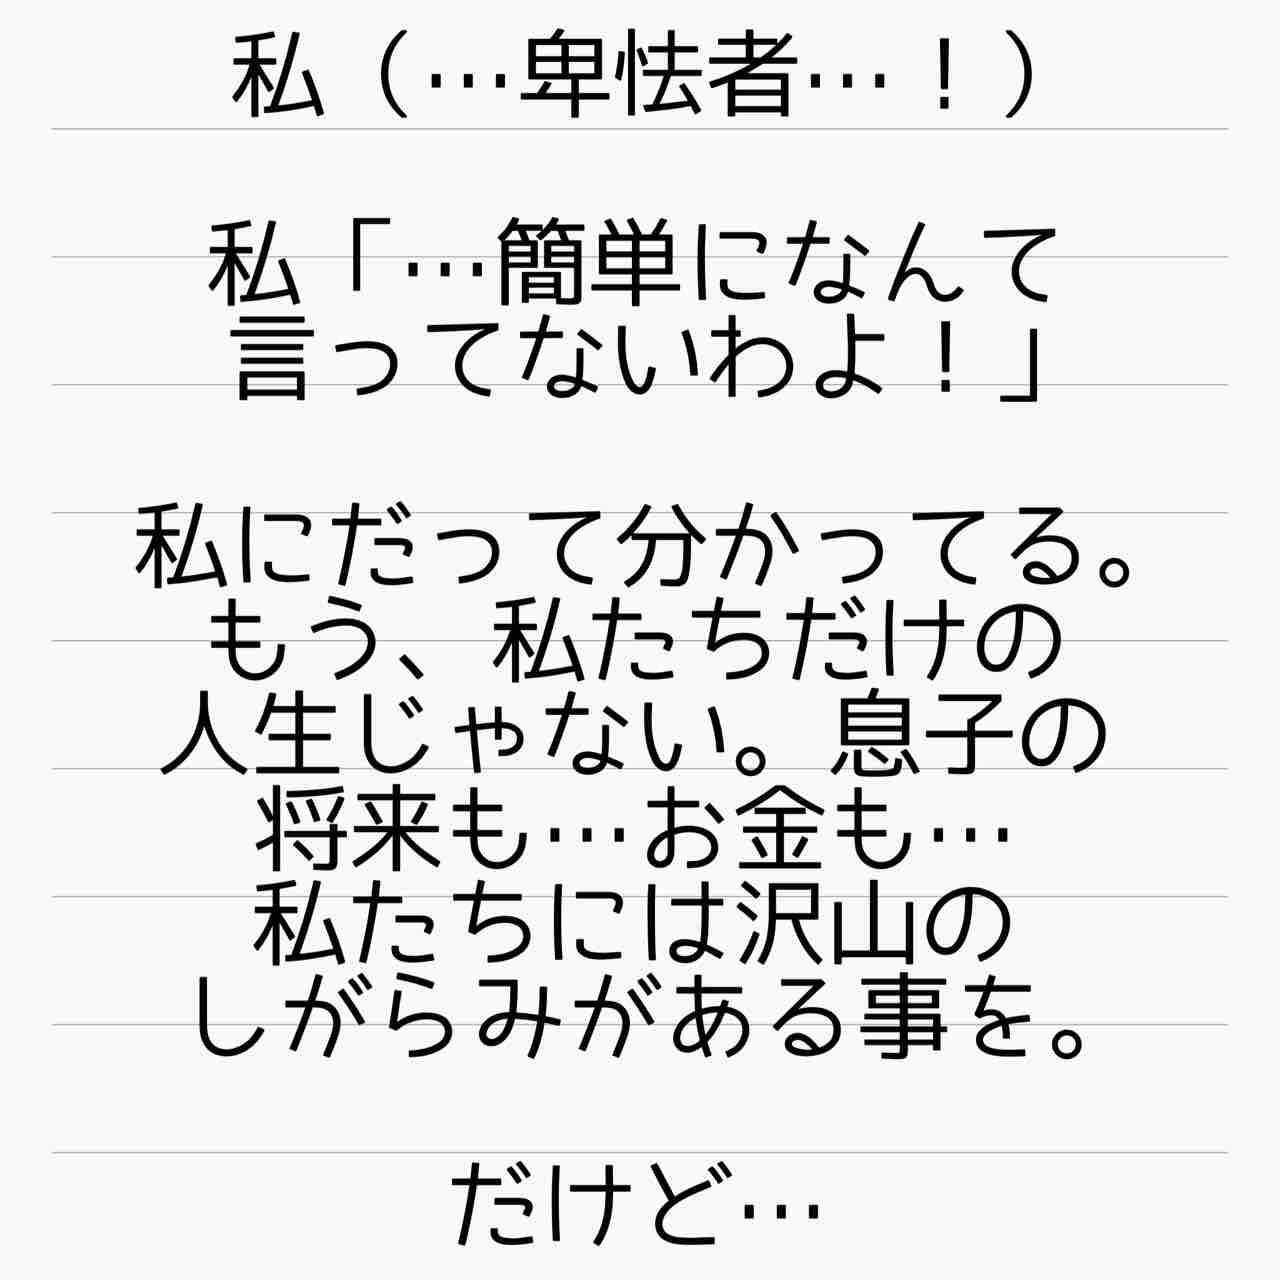 私（…卑怯者…！）
私「…簡単になんて
言ってないわよ！」
私にだって分かってる。
もう、私たちだけの
人生じゃない。息子の
将来も…お金も…
私たちには沢山の
しがらみがある事を。
だけど…